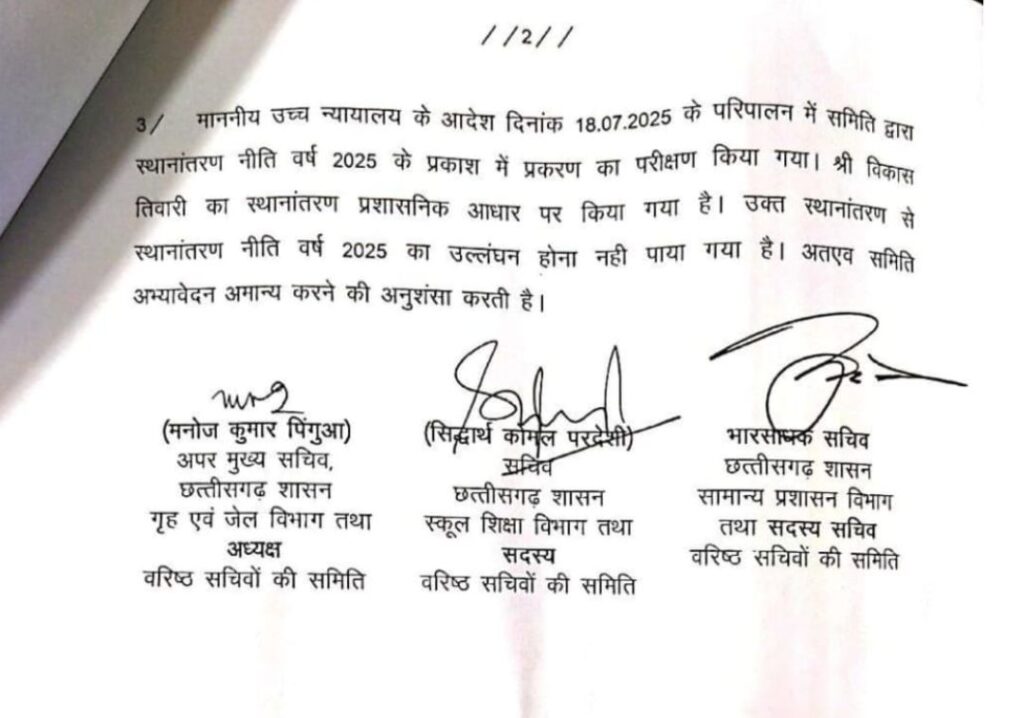 //2//
3/ माननीय उच्च न्यायालय के आदेश दिनांक 18.07.2025 के परिपालन में समिति द्वारा
स्थानांतरण नीति वर्ष 2025 के प्रकाश में प्रकरण का परीक्षण किया गया। श्री विकास
तिवारी का स्थानांतरण प्रशासनिक आधार पर किया गया है। उक्त स्थानांतरण से
स्थानांतरण नीति वर्ष 2025 का उल्लंघन होना नही पाया गया है। अतएव समिति
अभ्यावेदन अमान्य करने की अनुशंसा करती है।
(मनोज कुमार पिंगुआ)
अपर मुख्य सचिव,
छत्तीसगढ़ शासन
गृह एवं जेल विभाग तथा
अध्यक्ष
वरिष्ठ सचिवों की समिति
(सिद्धार्थ कोमल परदेशी)
सचिव
छत्तीसगढ़ शासन
स्कूल शिक्षा विभाग तथा
सदस्य
वरिष्ठ सचिवों की समिति
भारसाधक सचिव
छत्तीसगढ़ शासन
सामान्य प्रशासन विभाग
तथा सदस्य सचिव
वरिष्ठ सचिवों की समिति